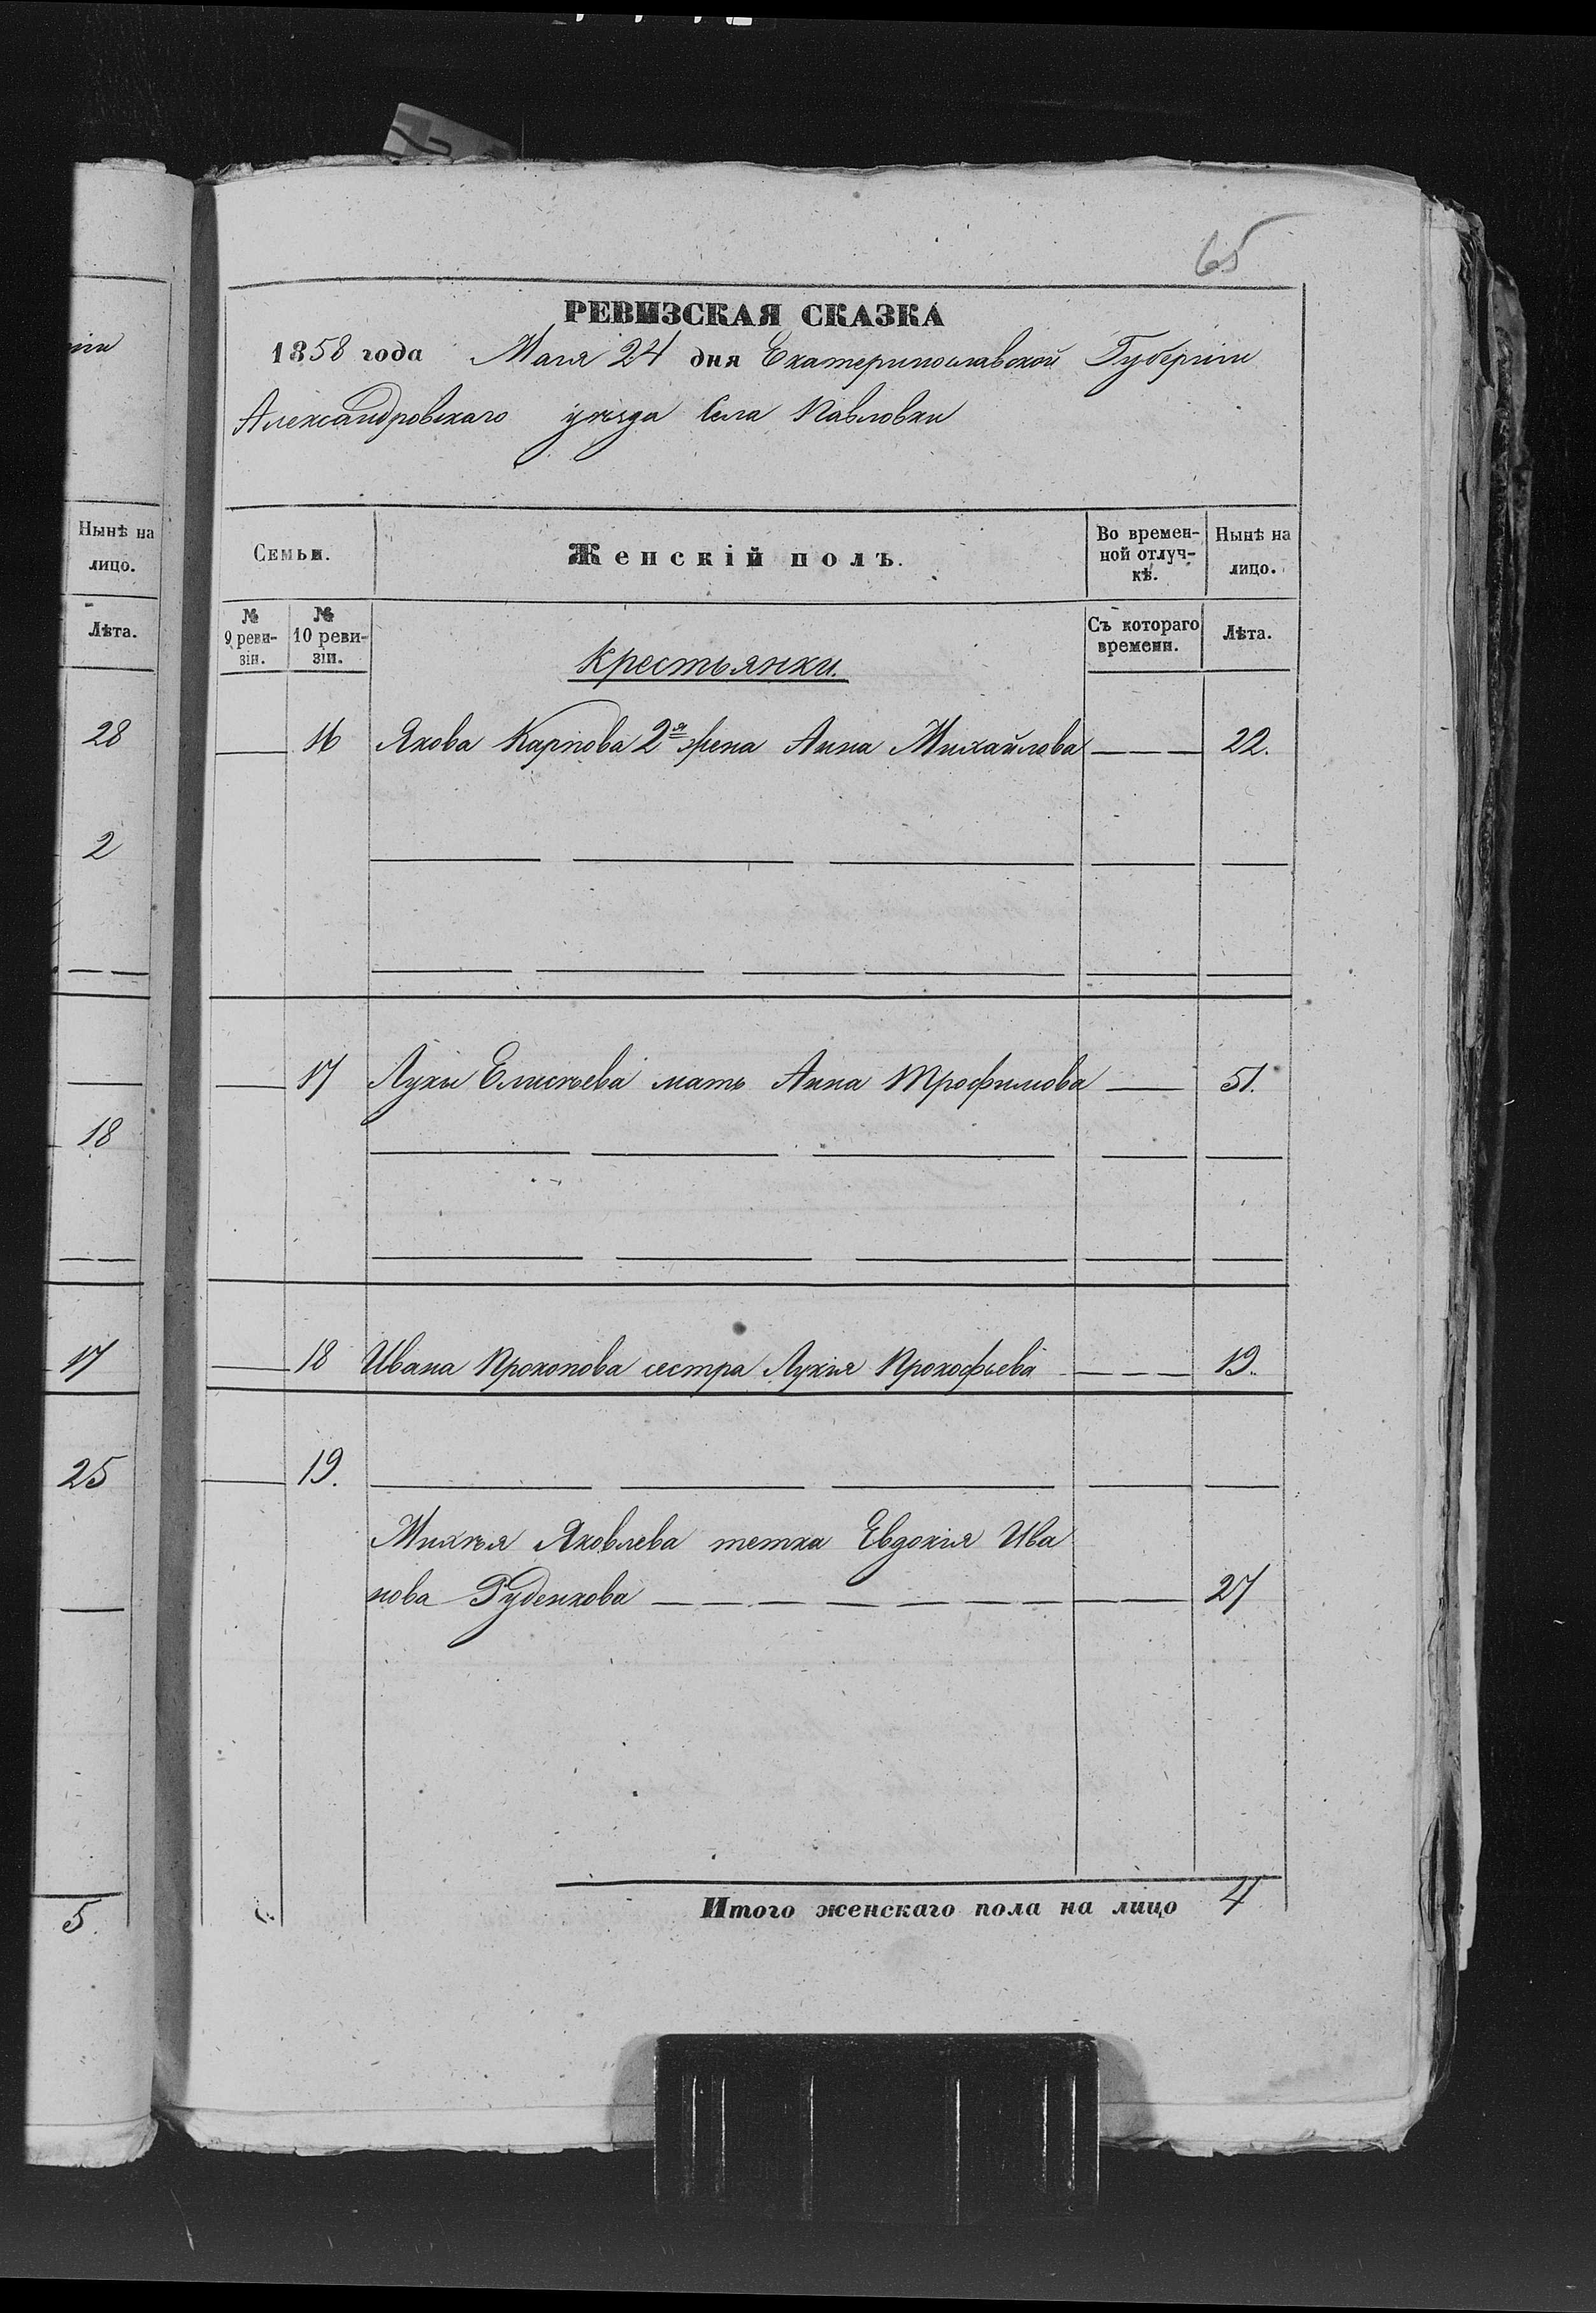 65
РЕВИЗСКАЯ СКАЗКА
1858 года Маія 24 дня Екатеринославской Губерніи
Александровскаго уѣзда Села Павловки
Нынѣ на лицо.
Лѣта.
28
2
18
17
25
5.
Семьи.
Женскій полъ.
Во временной отлуч-кѣ.
Нынѣ на лицо.
№ 9 реви-зіи.
№ 10 реви-зіи.
Съ котораго времени.
Лѣта.
Крестьянки.
16 Якова Карпова 2я жена Анна Михайлова 22.
17 Луки Елисѣева мать Анна Трофимова 51.
18 Ивана Прокопова сестра Лукія Прокофьева 19.
19.
Михѣя Яковлева тетка Евдокія Ива
нова Руденкова 27
Итого женскаго пола на лицо 4